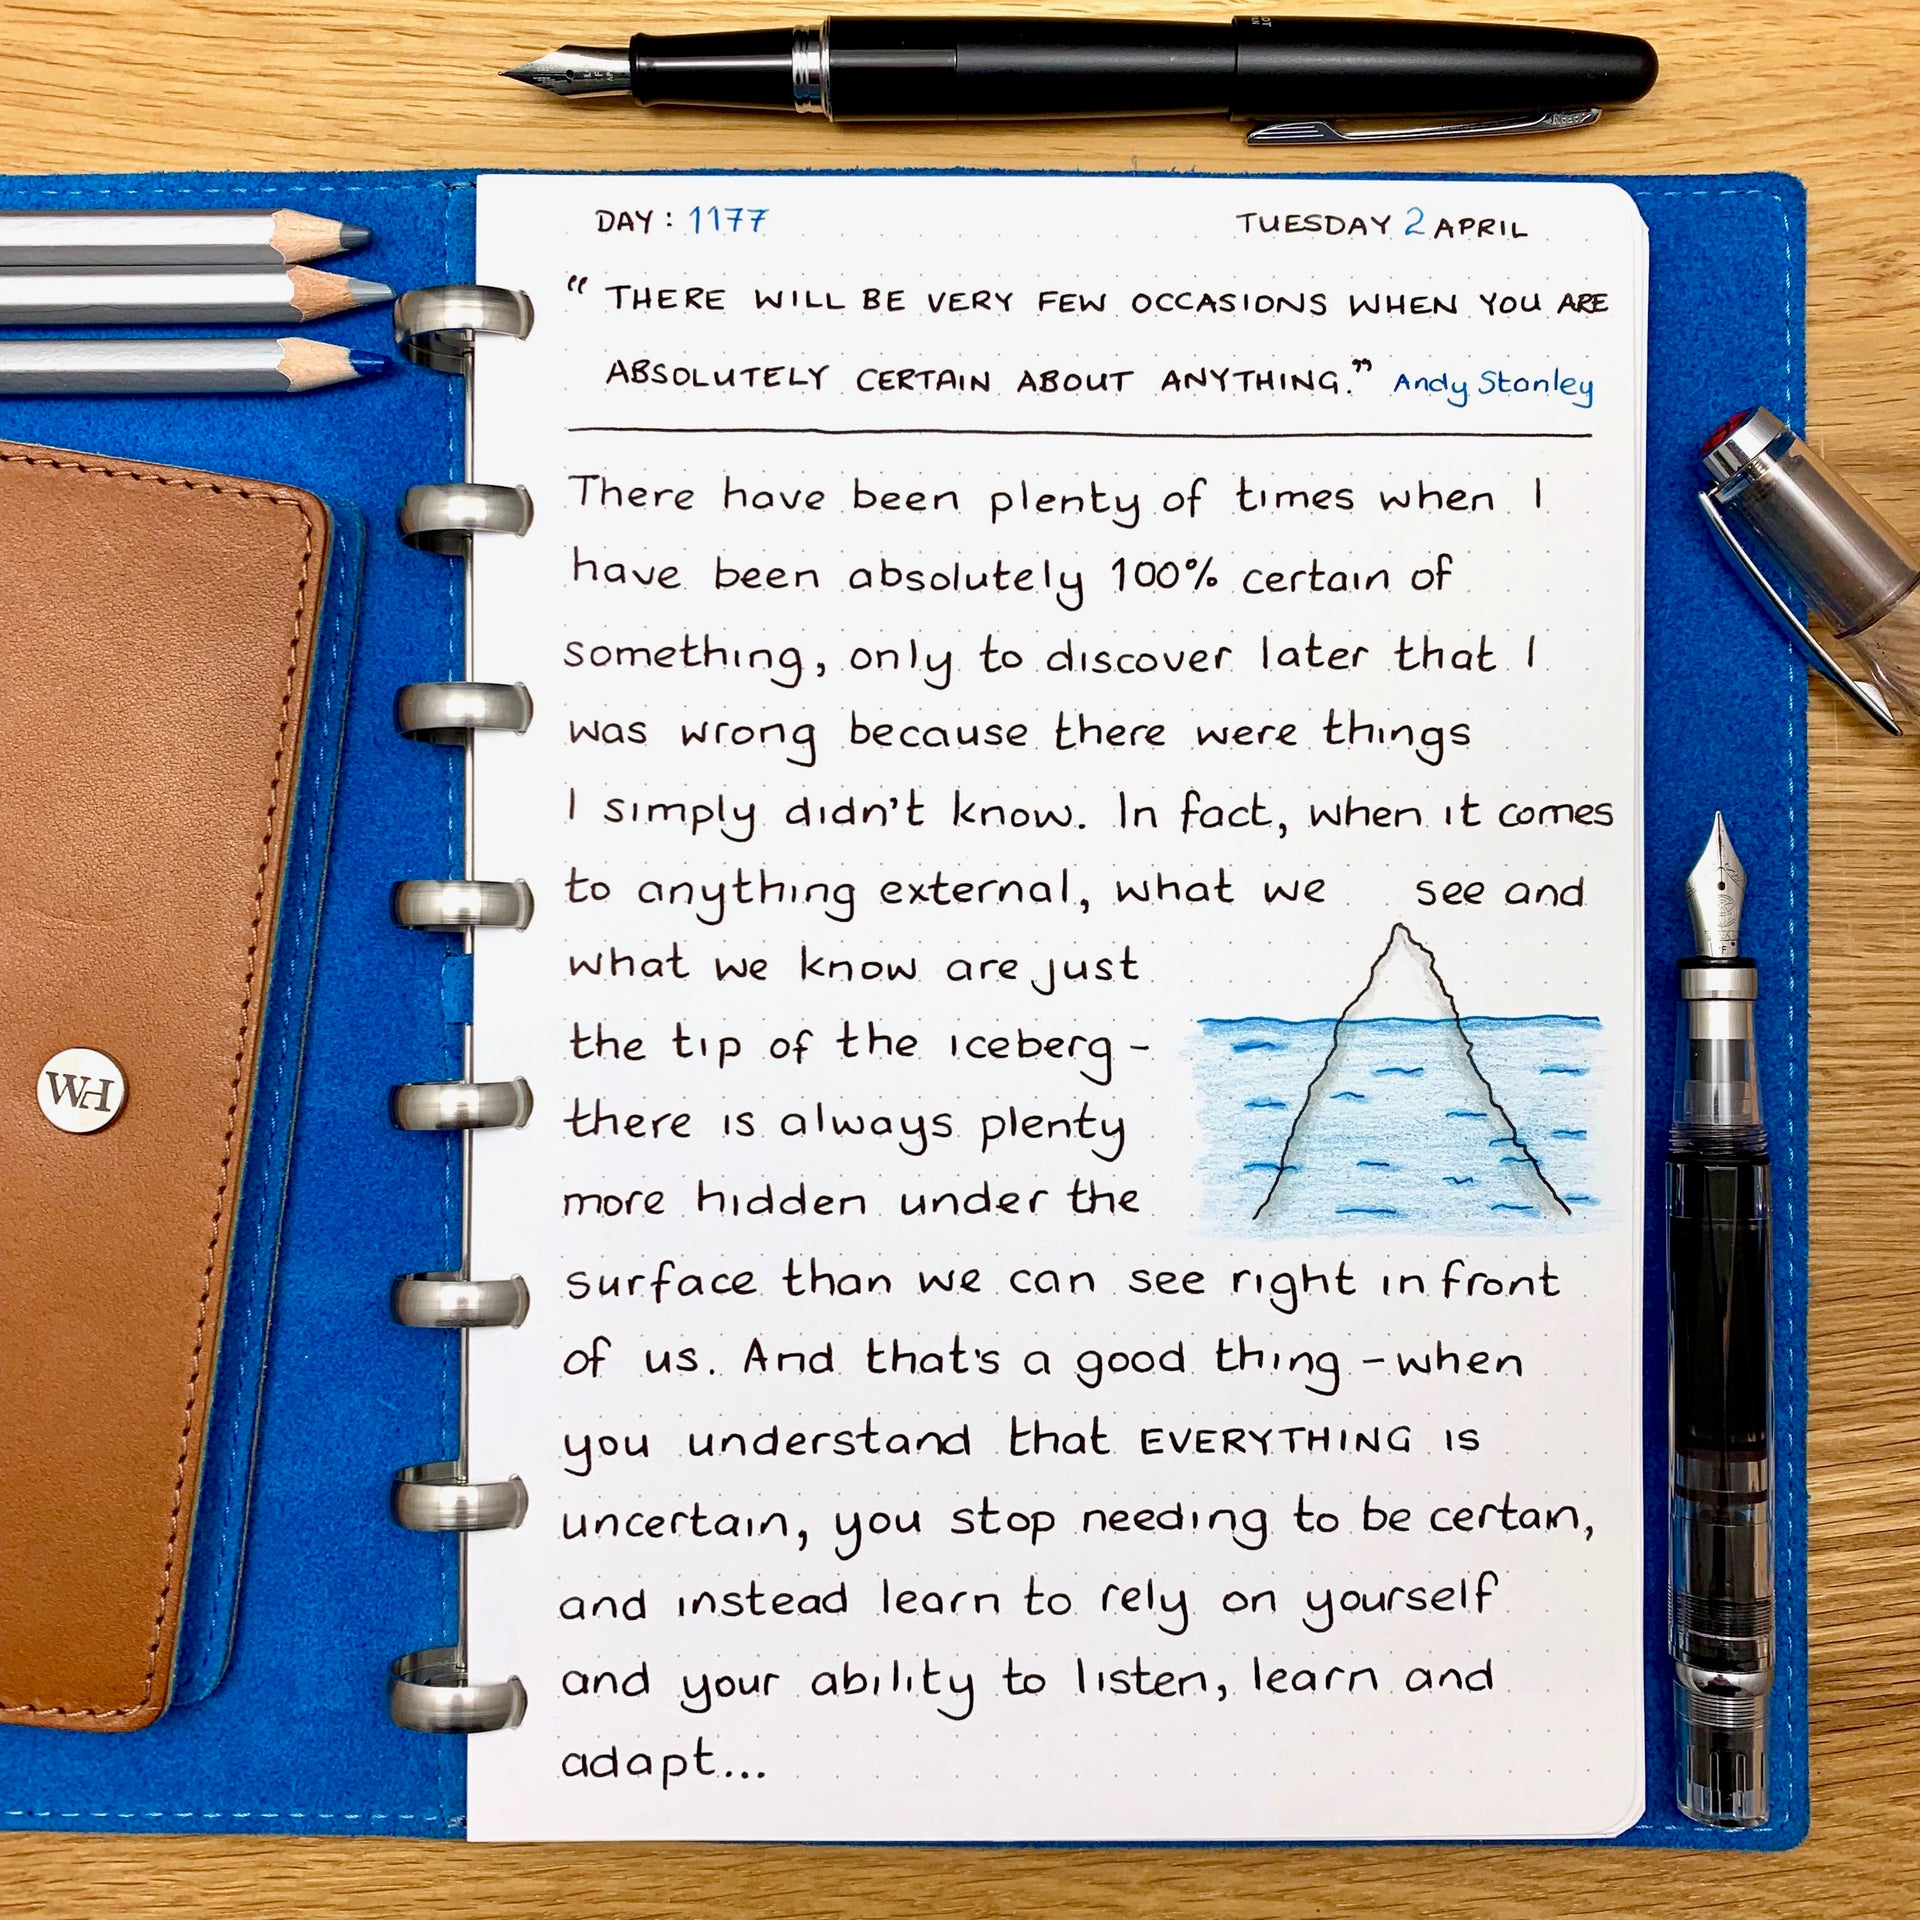 DAY: 1177
TUESDAY 2 APRIL
“ THERE WILL BE VERY FEW OCCASIONS WHEN YOU ARE
ABSOLUTELY CERTAIN ABOUT ANYTHING.” Andy Stanley
There have been plenty of times when I
have been absolutely 100% certain of
something, only to discover later that I
was wrong because there were things
I simply didn't know. In fact, when it comes
to anything external, what we see and
what we know are just
the tip of the iceberg -
there is always plenty
more hidden under the
surface than we can see right in front
of us. And that's a good thing - when
you understand that EVERYTHING IS
uncertain, you stop needing to be certain,
and instead learn to rely on yourself
and your ability to listen, learn and
adapt...
WH